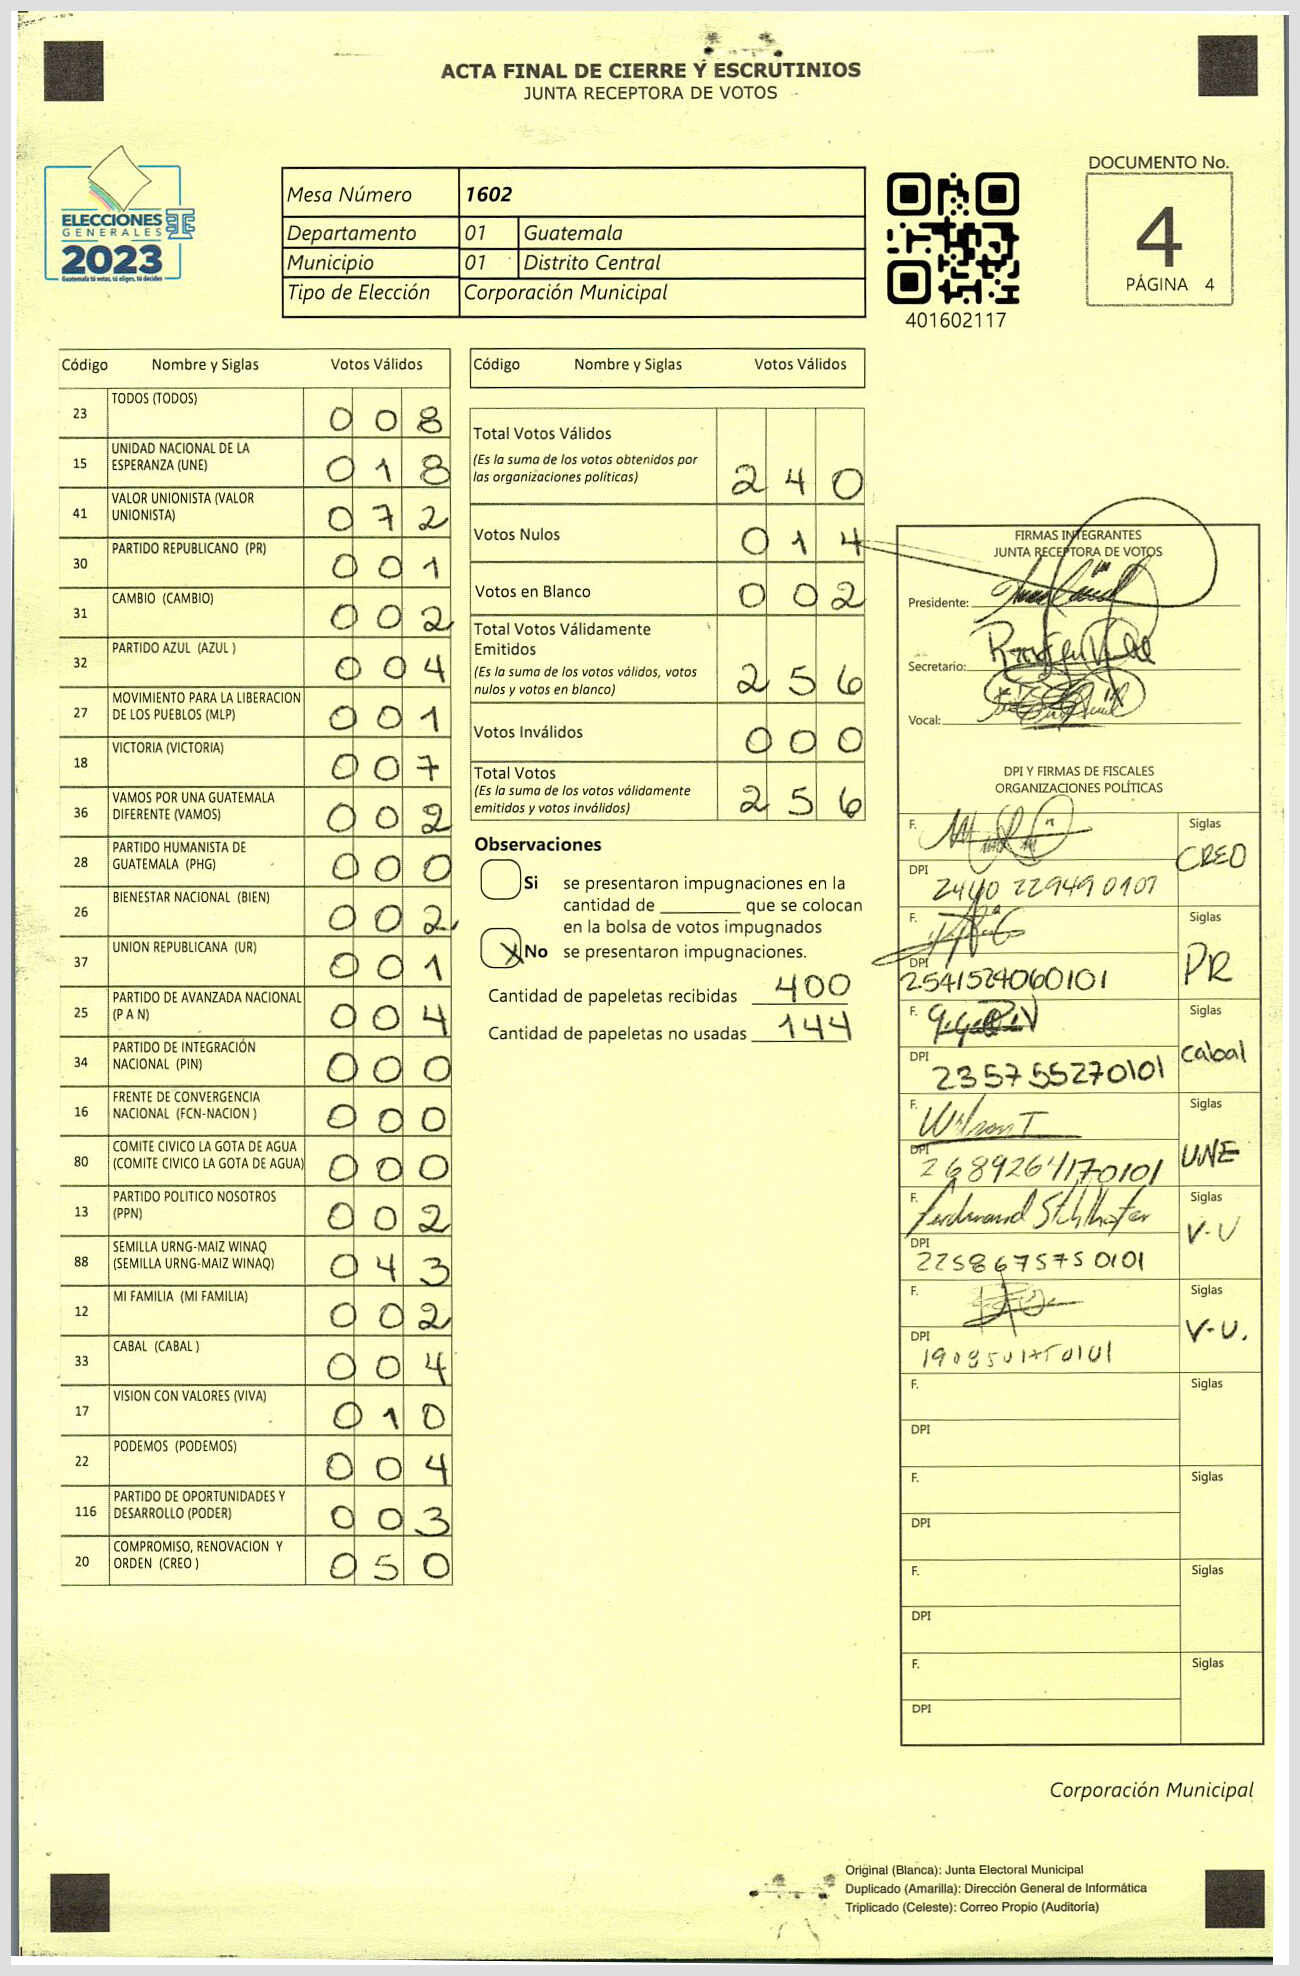 ACTA FINAL DE CIERRE Y ESCRUTINIOS
JUNTA RECEPTORA DE VOTOS
ELECCIONES
GENERALES
2023
Guatemala tú votas, tú eliges, tú decides
Mesa Número 1602
Departamento 01 Guatemala
Municipio 01 Distrito Central
Tipo de Elección Corporación Municipal
401602117
DOCUMENTO No.
4
PÁGINA 4
Código Nombre y Siglas Votos Válidos
23 TODOS (TODOS) 0 0 8
15 UNIDAD NACIONAL DE LA
ESPERANZA (UNE) 0 1 8
41 VALOR UNIONISTA (VALOR
UNIONISTA) 0 7 2
30 PARTIDO REPUBLICANO (PR) 0 0 1
31 CAMBIO (CAMBIO) 0 0 2
32 PARTIDO AZUL (AZUL ) 0 0 4
27 MOVIMIENTO PARA LA LIBERACION
DE LOS PUEBLOS (MLP) 0 0 1
18 VICTORIA (VICTORIA) 0 0 7
36 VAMOS POR UNA GUATEMALA
DIFERENTE (VAMOS) 0 0 2
28 PARTIDO HUMANISTA DE
GUATEMALA (PHG) 0 0 0
26 BIENESTAR NACIONAL (BIEN) 0 0 2
37 UNION REPUBLICANA (UR) 0 0 1
25 PARTIDO DE AVANZADA NACIONAL
(P A N) 0 0 4
34 PARTIDO DE INTEGRACIÓN
NACIONAL (PIN) 0 0 0
16 FRENTE DE CONVERGENCIA
NACIONAL (FCN-NACION ) 0 0 0
80 COMITE CIVICO LA GOTA DE AGUA
(COMITE CIVICO LA GOTA DE AGUA) 0 0 0
13 PARTIDO POLITICO NOSOTROS
(PPN) 0 0 2
88 SEMILLA URNG-MAIZ WINAQ
(SEMILLA URNG-MAIZ WINAQ) 0 4 3
12 MI FAMILIA (MI FAMILIA) 0 0 2
33 CABAL (CABAL ) 0 0 4
17 VISION CON VALORES (VIVA) 0 1 0
22 PODEMOS (PODEMOS) 0 0 4
116 PARTIDO DE OPORTUNIDADES Y
DESARROLLO (PODER) 0 0 3
20 COMPROMISO, RENOVACION Y
ORDEN (CREO ) 0 5 0
Código Nombre y Siglas Votos Válidos
Total Votos Válidos
(Es la suma de los votos obtenidos por
las organizaciones políticas) 2 4 0
Votos Nulos 0 1 4
Votos en Blanco 0 0 2
Total Votos Válidamente
Emitidos
(Es la suma de los votos válidos, votos
nulos y votos en blanco) 2 5 6
Votos Inválidos 0 0 0
Total Votos
(Es la suma de los votos válidamente
emitidos y votos inválidos) 2 5 6
Observaciones
Si se presentaron impugnaciones en la
cantidad de ________ que se colocan
en la bolsa de votos impugnados
X No se presentaron impugnaciones.
Cantidad de papeletas recibidas 400
Cantidad de papeletas no usadas 144
FIRMAS INTEGRANTES
JUNTA RECEPTORA DE VOTOS
Presidente:
Secretario:
Vocal:
DPI Y FIRMAS DE FISCALES
ORGANIZACIONES POLÍTICAS
F. Siglas
CREO
DPI
F. Siglas
PR
DPI
2541524060101
F. Siglas
Cabal
DPI
2357 55270101
F. Siglas
UNE
DPI
F. Siglas
V-U
DPI
2258675750101
F. Siglas
V-U.
DPI
F. Siglas
DPI
F. Siglas
DPI
F. Siglas
DPI
F. Siglas
DPI
Corporación Municipal
Original (Blanca): Junta Electoral Municipal
Duplicado (Amarilla): Dirección General de Informática
Triplicado (Celeste): Correo Propio (Auditoría)